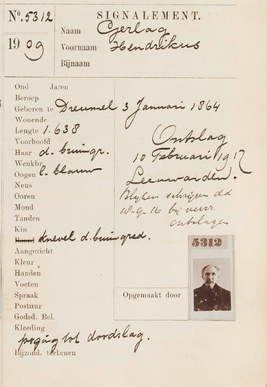 No. 5312
SIGNALEMENT.
1909
Naam Gerlag
Voornaam Hendrikus
Bijnaam
Oud Jaren
Beroep
Geboren te Dreumel 3 Januari 1864
Wonende
Lengte 1.638
Voorhoofd
Haar d. bruingr.
Wenkbr.
Oogen l. blauw
Neus
Ooren
Mond
Tanden
Kin
Baard knevel d. bruin
Aangezicht
Kleur
Handen
Voeten
Spraak
Postuur
Godsd. Bel.
Kleeding
poging tot doodslag.
Bijzond. teekenen
Ontslag
10 Februari 1917
Leeuwarden.
Blijkens schrijven dd
ontslagen
5312
Opgemaakt door